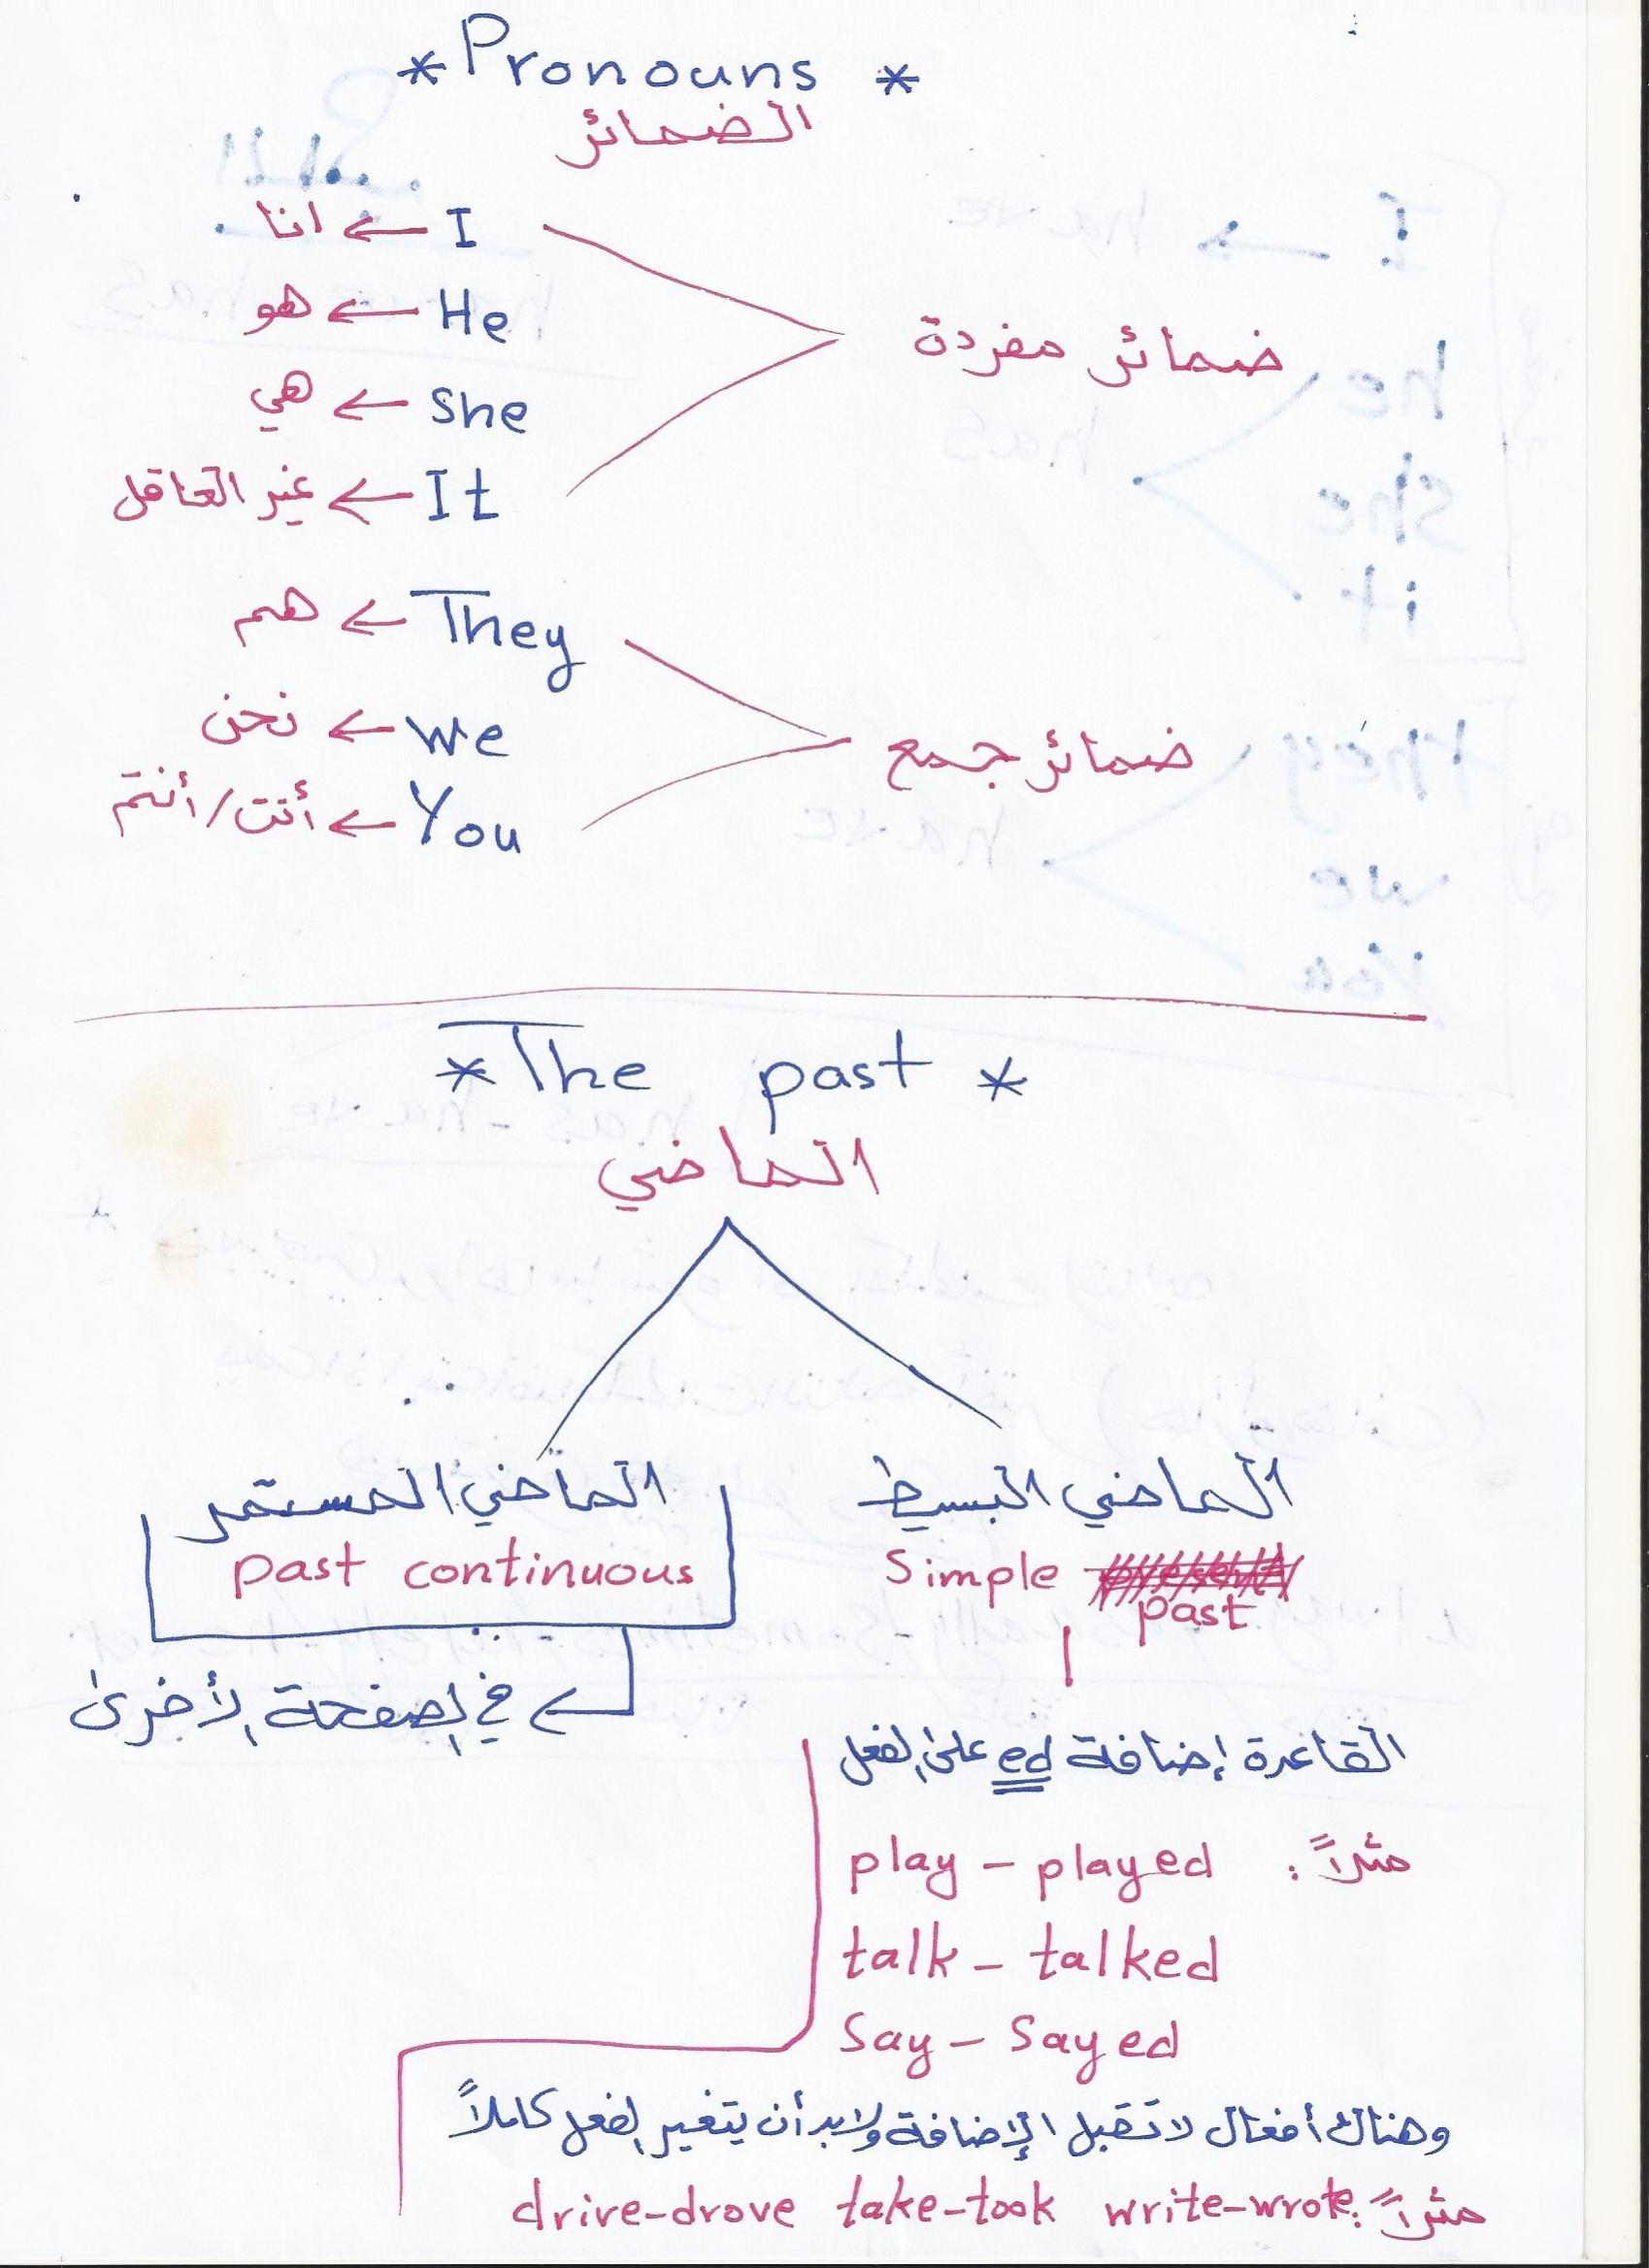 *Pronouns *
الضمائر
I ← انا
He ← هو
She ← هي
It ← غير العاقل
ضمائر مفردة
They ← هم
we ← نحن
You ← أنت/أنتم
ضمائر جمع
*The past *
الماضي
الماضي البسيط
Simple past
الماضي المستمر
past continuous
في الصفحة الأخرى
القاعدة إضافة ed على الفعل
مثلاً :
play – played
talk – talked
Say – Sayed
وهناك أفعال لا تقبل الإضافة ولابد أن يتغير الفعل كاملاً
مثلاً: write-wrote take-took drive-drove